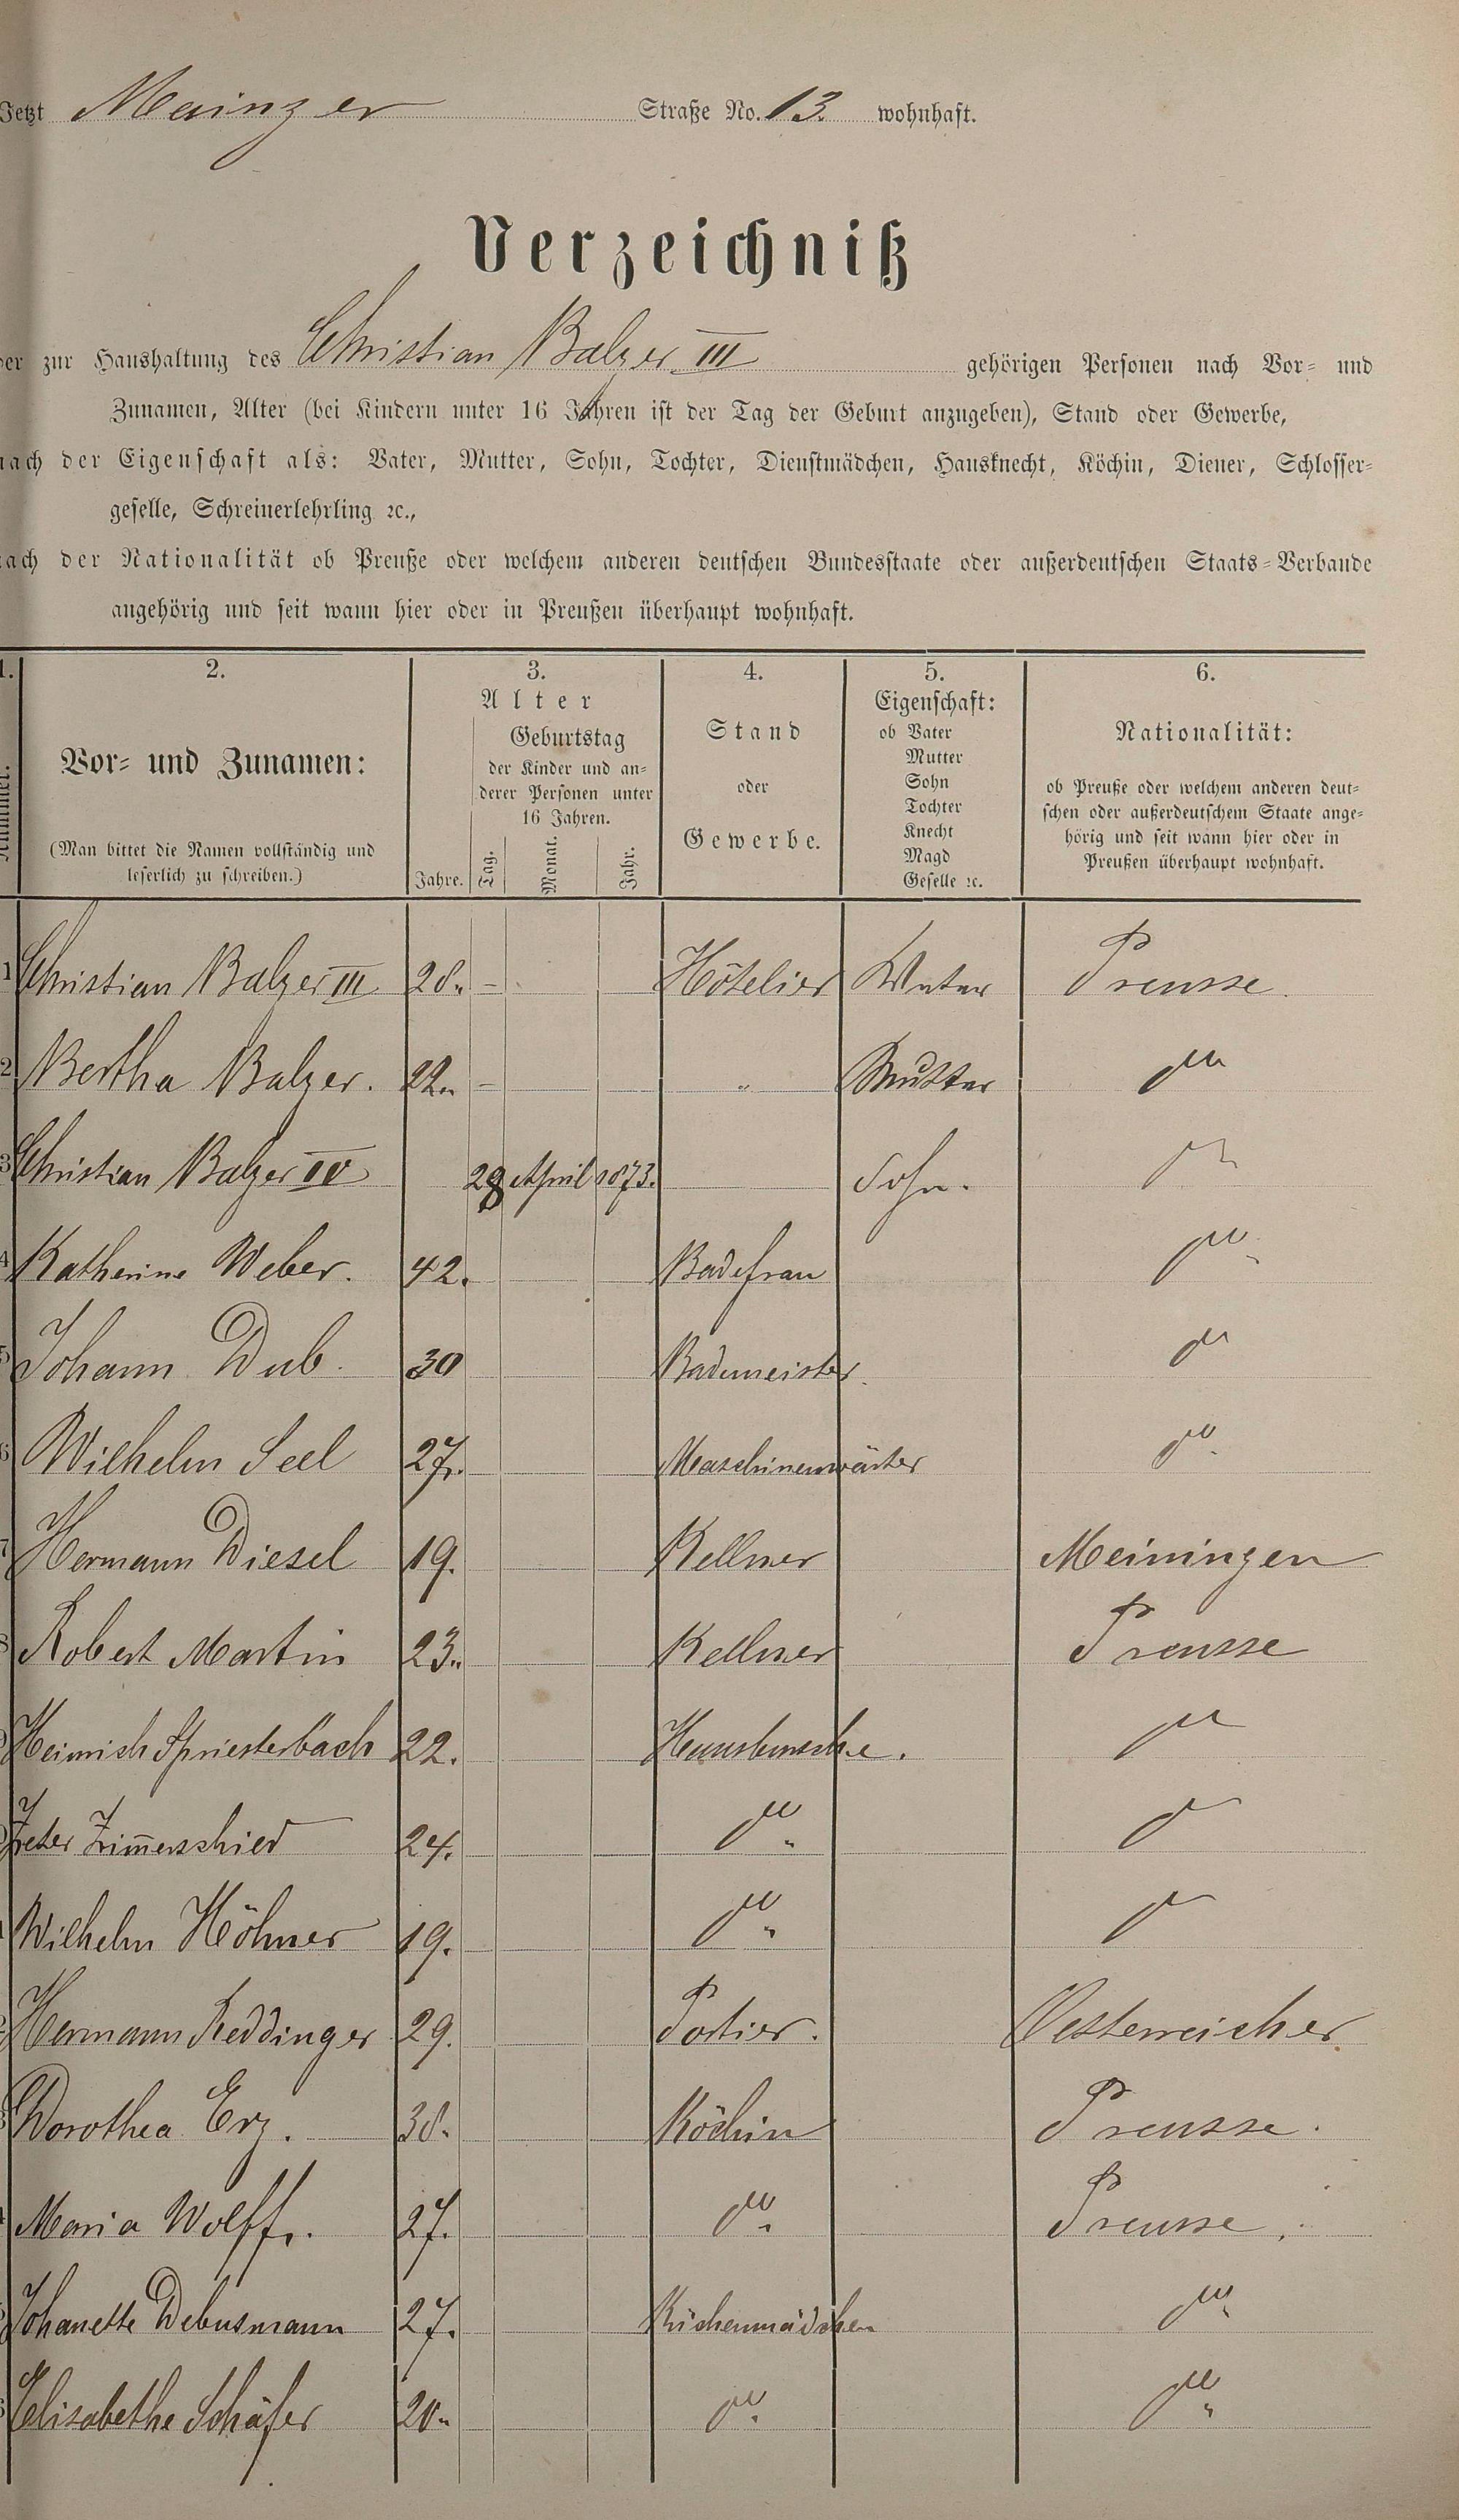 Jetzt Mainzer Straße No. 13. wohnhaft.
Verzeichniß
der zur Haushaltung des Christian Balzer III gehörigen Personen nach Vor- und
Zunamen, Alter (bei Kindern unter 16 Jahren ist der Tag der Geburt anzugeben), Stand oder Gewerbe,
nach der Eigenschaft als: Vater, Mutter, Sohn, Tochter, Dienstmädchen, Hausknecht, Köchin, Diener, Schlosser-
geselle, Schreinerlehrling ꝛc.,
nach der Nationalität ob Preuße oder welchem anderen deutschen Bundesstaate oder außerdeutschen Staats-Verbande
angehörig und seit wann hier oder in Preußen überhaupt wohnhaft.
1. 2. 3. 4. 5. 6.
Nummer.
Vor- und Zunamen:
(Man bittet die Namen vollständig und
leserlich zu schreiben.)
Alter
Geburtstag
der Kinder und an-
derer Personen unter
16 Jahren.
Jahre. Tag. Monat. Jahr.
Stand
oder
Gewerbe.
Eigenschaft:
ob Vater
Mutter
Sohn
Tochter
Knecht
Magd
Geselle ꝛc.
Nationalität:
ob Preuße oder welchem anderen deut-
schen oder außerdeutschem Staate ange-
hörig und seit wann hier oder in
Preußen überhaupt wohnhaft.
1 Christian Balzer III 28. - Hôtelier Vater Preusse.
2 Bertha Balzer. 22. - " Mutter do
3 Christian Balzer IV 28 April 1873. Sohn. do
4 Katherine Weber. 42. Badefrau do
5 Johann Dub. 30 Bademeister. do
6 Wilhelm Seel 27. Maschinenwärter do
7 Hermann Diesel 19. Kellner Meiningen
8 Robert Martin 23. Kellner Preusse
Heinrich Spriesterbach 22. Hausbursche. do
Peter Zimerschied 24. do do
Wilhelm Höhner 19. do do
Hermann Reddinger 29. Portier. Oesterreicher
Dorothea Erz. 38. Köchin Preusse.
Maria Wolff. 27. do Preusse.
Johanette Debusmann 27. Küchenmädchen do
Elisabethe Schäfer 20. do do